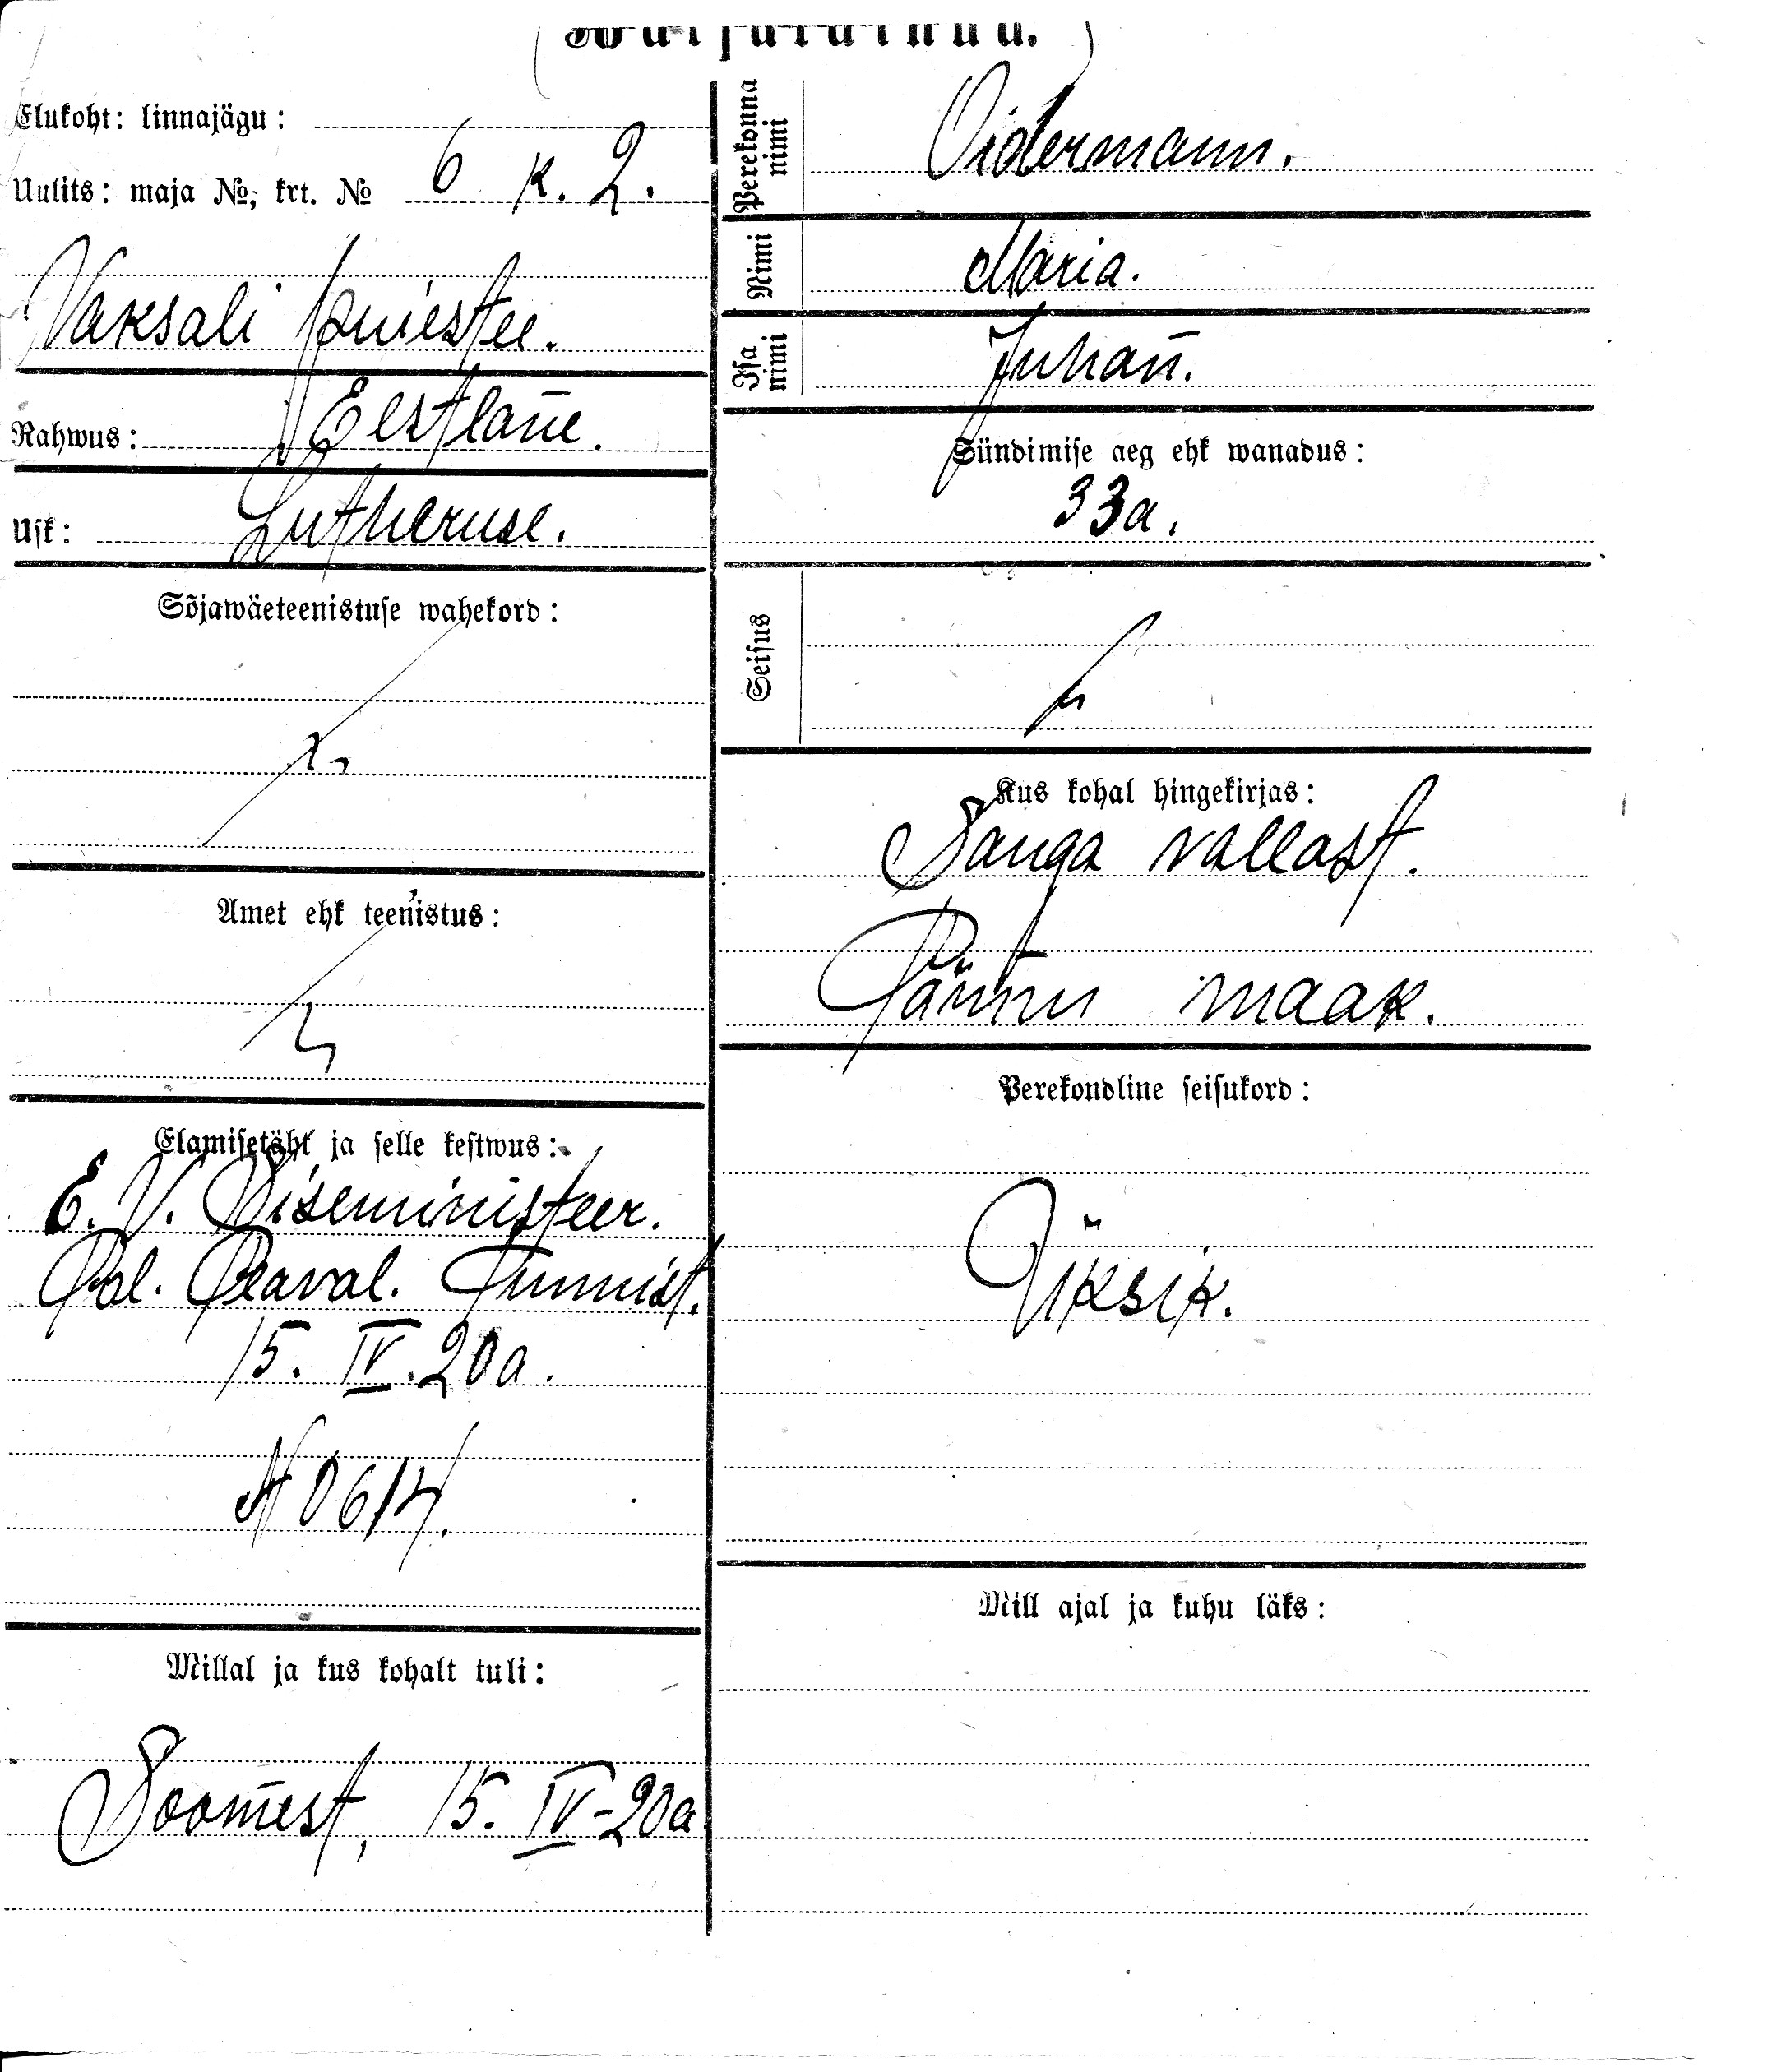 Elukoht: linnajägu:
Uulits: maja №, krt. № 6 k. 2.
Vaksali puiestee.
Rahwus: Eestlane.
Usk: Lutheruse.
Sõjawäeteenistuse wahekord:
Amet ehk teenistus:
Elamisetäht ja selle kestwus:
E. V. Siseministeer.
Pol. Peaval. Tunnist.
15. IV. 20a.
N 0614.
Millal ja kus kohalt tuli:
Soomest, 15. IV-20a
Perekonna nimi Oidermann.
Nimi Maria.
Isa nimi Juhan.
Sündimise aeg ehk wanadus:
33a.
Seisus
Kus kohal hingekirjas:
Sauga vallast.
Pärnu maak.
Perekondline seisukord:
Üksik.
Mill ajal ja kuhu läks: